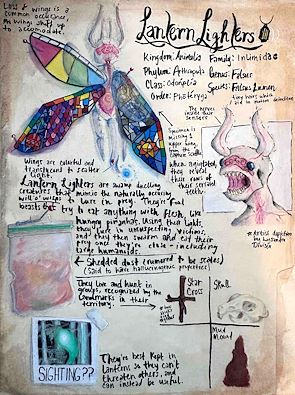 Loss of wings is a
common occurence,
wings shift
to accomodate.
Lantern Lighters
Kingdom: Animalia
Family: Intimidae
Phylum: Arthropoda
Genus: Falsus
Class: Odonptera
Species: Falsus Lumen
Order:
Tiny hairs which
aid in motion detection
The nerves
inside their
Specimen is
missing 1
upper wing
from the
capture scuffle
When agitated,
they reveal
their rows of
their serrated
teeth.
Wings are colorful and
translucent to scatter
light.
Lantern Lighters are swamp dwelling
creatures that mimic the naturally occuring
will'o'wisps to lure in prey. They're foul
beasts that try to eat anything with flesh, like
hungry piranhas. Using their lights,
they lure in unsuspecting victims,
and they then swarm and eat their
prey once they're close - including
large humanoids.
Artist depiction
by Lysandra
← Shedded dust (rumored to be scales)
(Said to have hallucinogenic properties)
They live and hunt in
groups, recognized by the
landmarks in their →
territory.
Star
Cross
Skull
Mud
Mound
SIGHTING??
They're best kept in
lanterns so they can't
threaten others, and
can instead be useful.